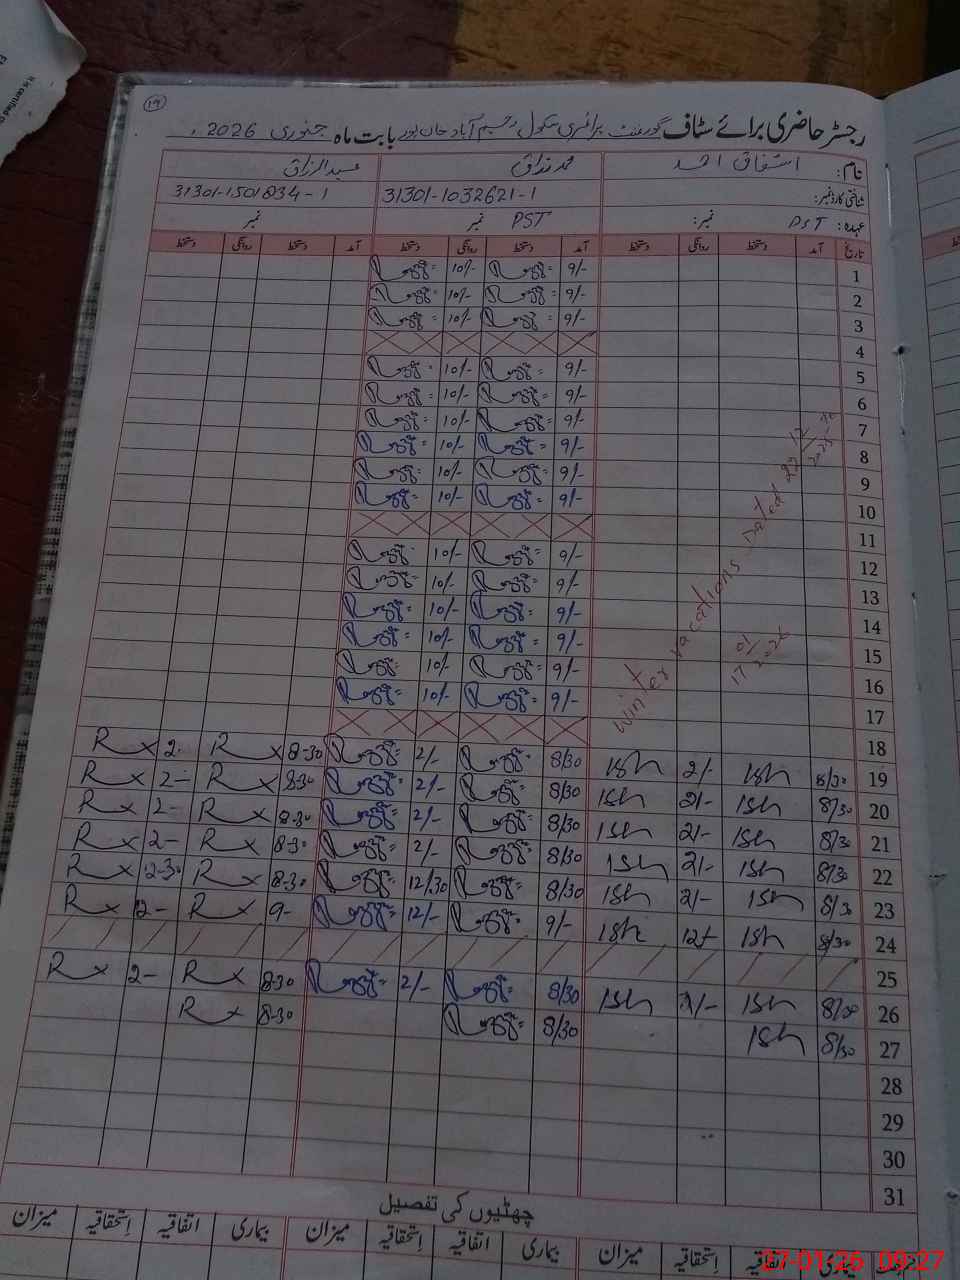 ۱۹
رجسٹر حاضری برائے سٹاف گورنمنٹ پرائمری سکول رحیم آباد خان پور بابت ماہ جنوری 2026ء
نام: اشفاق احمد محمد عبدالرزاق
شناختی کارڈ نمبر: 31301-1032621-1 31301-1501834-1
عہدہ: PST نمبر: PST نمبر نمبر
تاریخ آمد دستخط روانگی دستخط آمد دستخط روانگی دستخط آمد دستخط روانگی دستخط
1 9/- 10/-
2 9/- 10/-
3 9/- 10/-
4
5 9/- 10/-
6 9/- 10/-
7 9/- 10/-
8 9/- 10/-
9 9/- 10/-
10 9/- 10/-
11
12 9/- 10/-
13 9/- 10/-
14 9/- 10/-
15 9/- 10/-
16 9/- 10/-
17 9/- 10/-
Winter vacations Dated
17 01/2026
18
19 8/30 Ish 2/- Ish 8/30 2/- 8-30 2-
20 8/30 Ish 2/- Ish 8/30 2/- 8-30 2-
21 8/30 Ish 2/- Ish 8/30 2/- 8-30 2-
22 8/30 Ish 2/- Ish 8/30 2/- 8-30 2-
23 8/30 Ish 2/- Ish 8/30 12/30 8-30 2-30
24 8/30 Ish 12/- Ish 9/- 12/- 9- 2-
25
26 8/30 Ish 2/- Ish 8/30 2/- 8-30 2-
27 8/30 Ish 8/30 8-30
28
29
30
31
چھٹیوں کی تفصیل
بیماری اتفاقیہ استحقاقیہ میزان بیماری اتفاقیہ استحقاقیہ میزان بیماری اتفاقیہ استحقاقیہ میزان
27-01-26 09:27